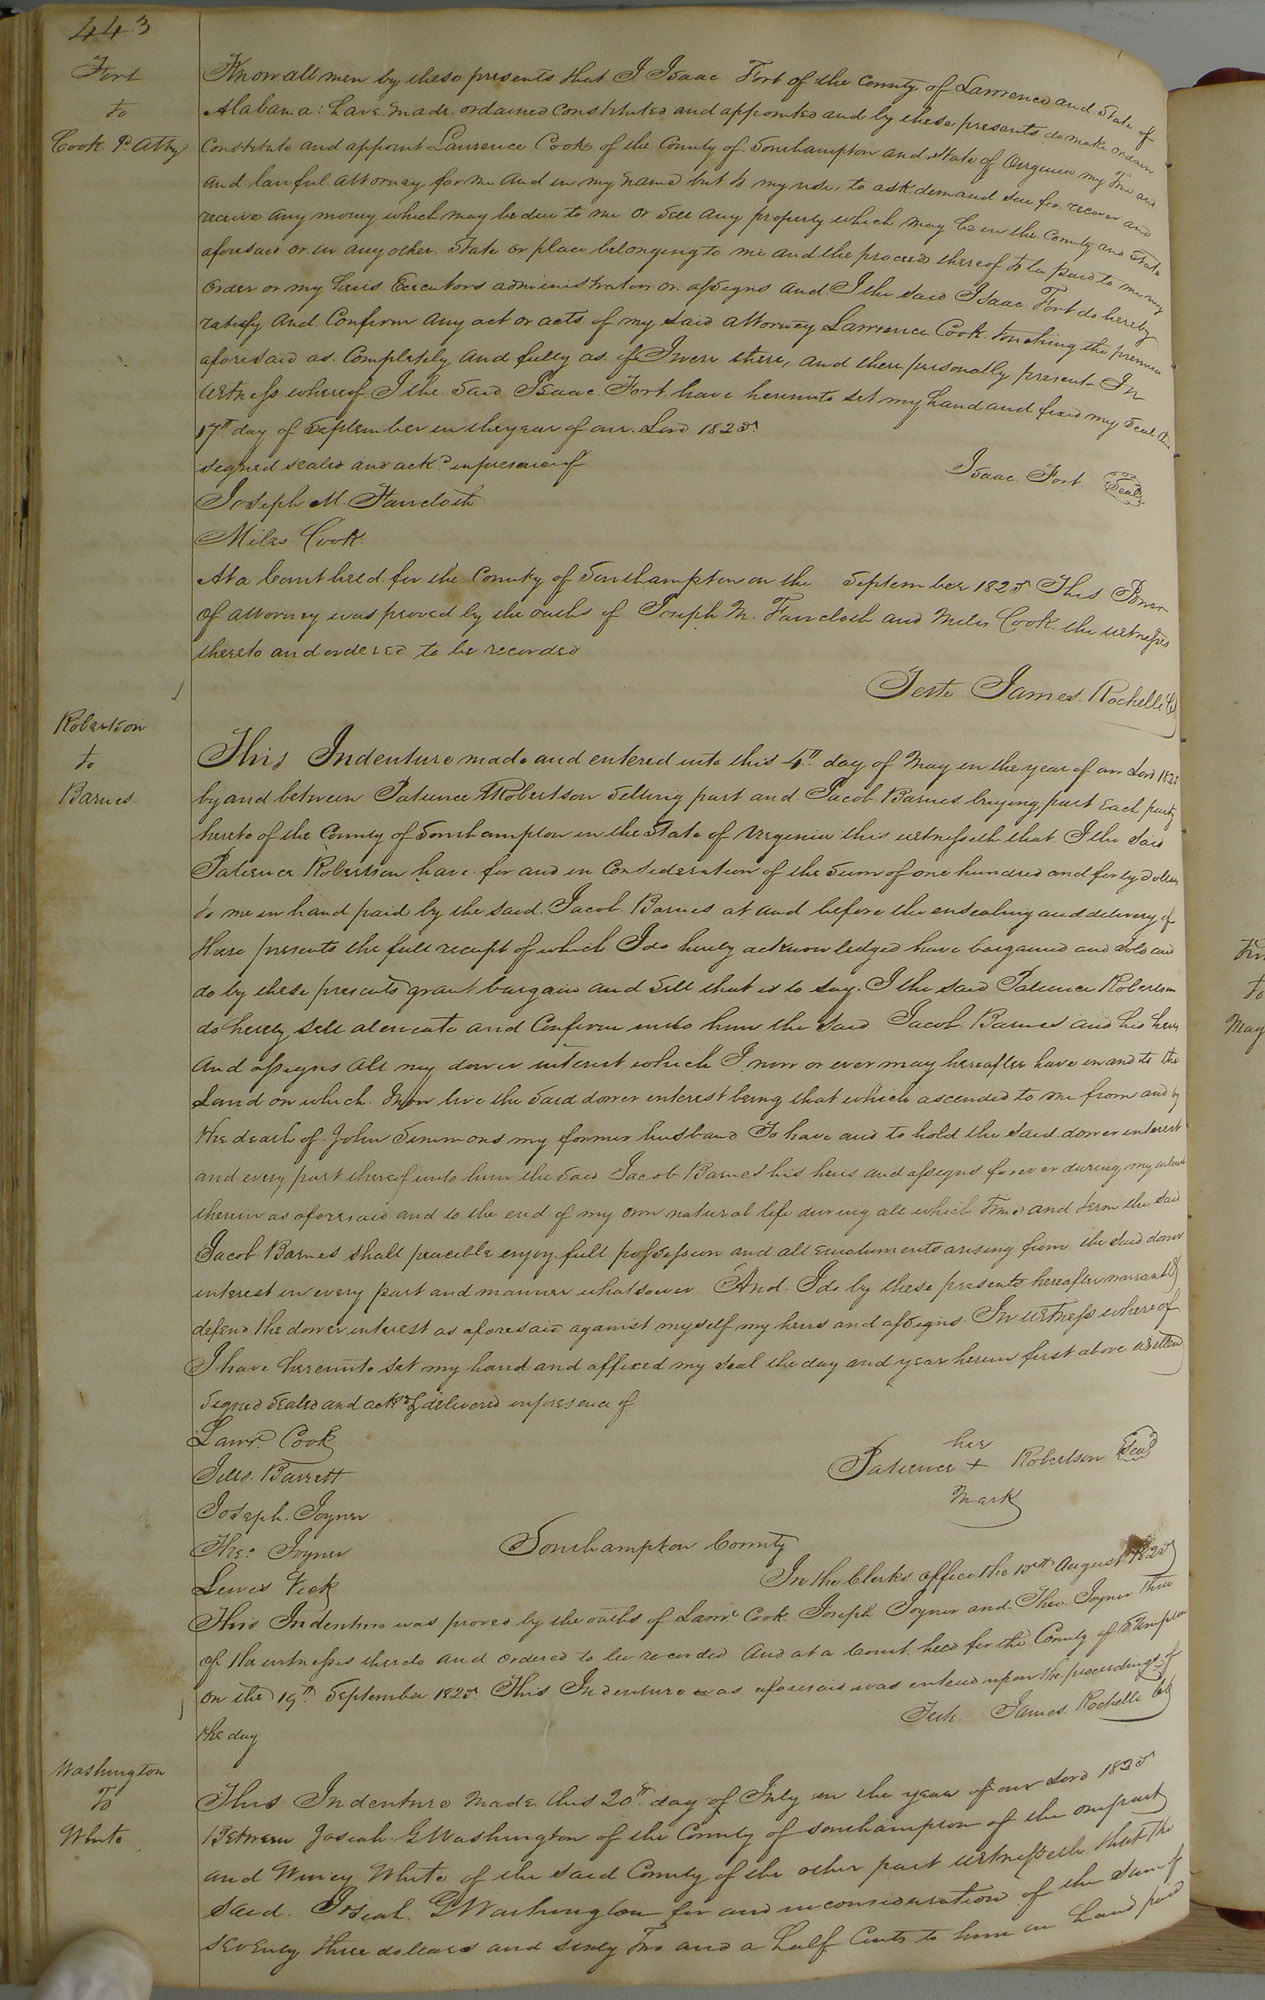 443
Fort
to
Cook P. Atty
Know all men by these presents that I Isaac Fort of the County of Lawrence and State of
Alabama: have made ordained constituted and appointed and by these presents do make ordain
Constitute and appoint Laurence Cook of the County of Southampton and State of Virginia my True and
and lawful attorney for me and in my name but to my use, to ask demand sue for recover and
receive any money which may be due to me or Sell any property which may be in the County and State
aforesaid or in any other State or place belonging to me and the proceeds thereof to be paid to me my
order or my heirs Executors administrators or assigns and I the said Isaac Fort do hereby
ratify and Confirm any act or acts of my said attorney Lawrence Cook touching the premises
aforesaid as Completely and fully as if I were there, and there personally present In
witness whereof I the said Isaac Fort have hereunto set my hand and fixed my Seal this
17th day of September in the year of our Lord 1825
signed sealed and ackd in presence of
Isaac Fort Seal
Joseph M Faircloth
Miles Cook
At a Court held for the County of Southampton on the September 1825 This Power
of attorney was proved by the oaths of Joseph M. Faircloth and Miles Cook the witnesses
thereto and ordered to be recorded
Teste James Rochelle Ck
Robertson
to
Barnes
This Indenture made and entered into this 4th day of May in the year of our Lord 1825
by and between Patience Robertson Selling part and Jacob Barnes buying part Each party
hereto of the County of Southampton in the State of Virginia this witnesseth that I the said
Patience Robertson have for and in Consideration of the Sum of one hundred and forty dollars
to me in hand paid by the said Jacob Barnes at and before the ensealing and delivery of
these presents the full receipt of which I do hereby acknowledged have bargained and sold and
do by these presents grant bargain and Sell that is to say. I the said Patience Robertson
do hereby sell alienate and Confirm unto him the said Jacob Barnes and his heirs
and assigns all my dower interest which I now or ever may hereafter have in and to the
Land on which I now live the said dower interest being that which ascended to me from and by
the death of John Simmons my former husband To have and to hold the said dower interest
and every part thereof unto him the said Jacob Barnes his heirs and assigns forever during my interest
therein as aforesaid and to the end of my own natural life during all which Time and term the said
Jacob Barnes shall peaceble enjoy full possession and all emoluments arising from the said dower
interest in every part and manner whatsoever And I do by these presents hereafter warrant &
defend the dower interest as aforesaid against myself my heirs and assigns. In witness whereof
I have hereunto set my hand and affixed my seal the day and year herein first above written
Signed Sealed and ackd & delivered in presence of
Lawr. Cook
her
Patience + Robertson Seal
mark
Barrett
Joseph Joyner
Theo. Joyner
Lewis Vick
Southampton County
In the Clerks office the August 1825
This Indenture was proved by the oaths of Lawr. Cook Joseph Joyner and Theo. Joyner three
of the witnesses thereto and ordered to be recorded And at a Court held for the County of
on the 19th September 1825 This Indenture as aforesaid was entered upon the proceedings of
the day
Teste James Rochelle Ck
Washington
To
White
This Indenture made this 20th day of July in the year of our Lord 1825
Between Josiah G Washington of the County of Southampton of the one part
and Winney White of the said County of the other part witnesseth that the
said Josiah G Washington for and in consideration of the Sum of
seventy three dollars and sixty two and a half Cents to him in hand paid